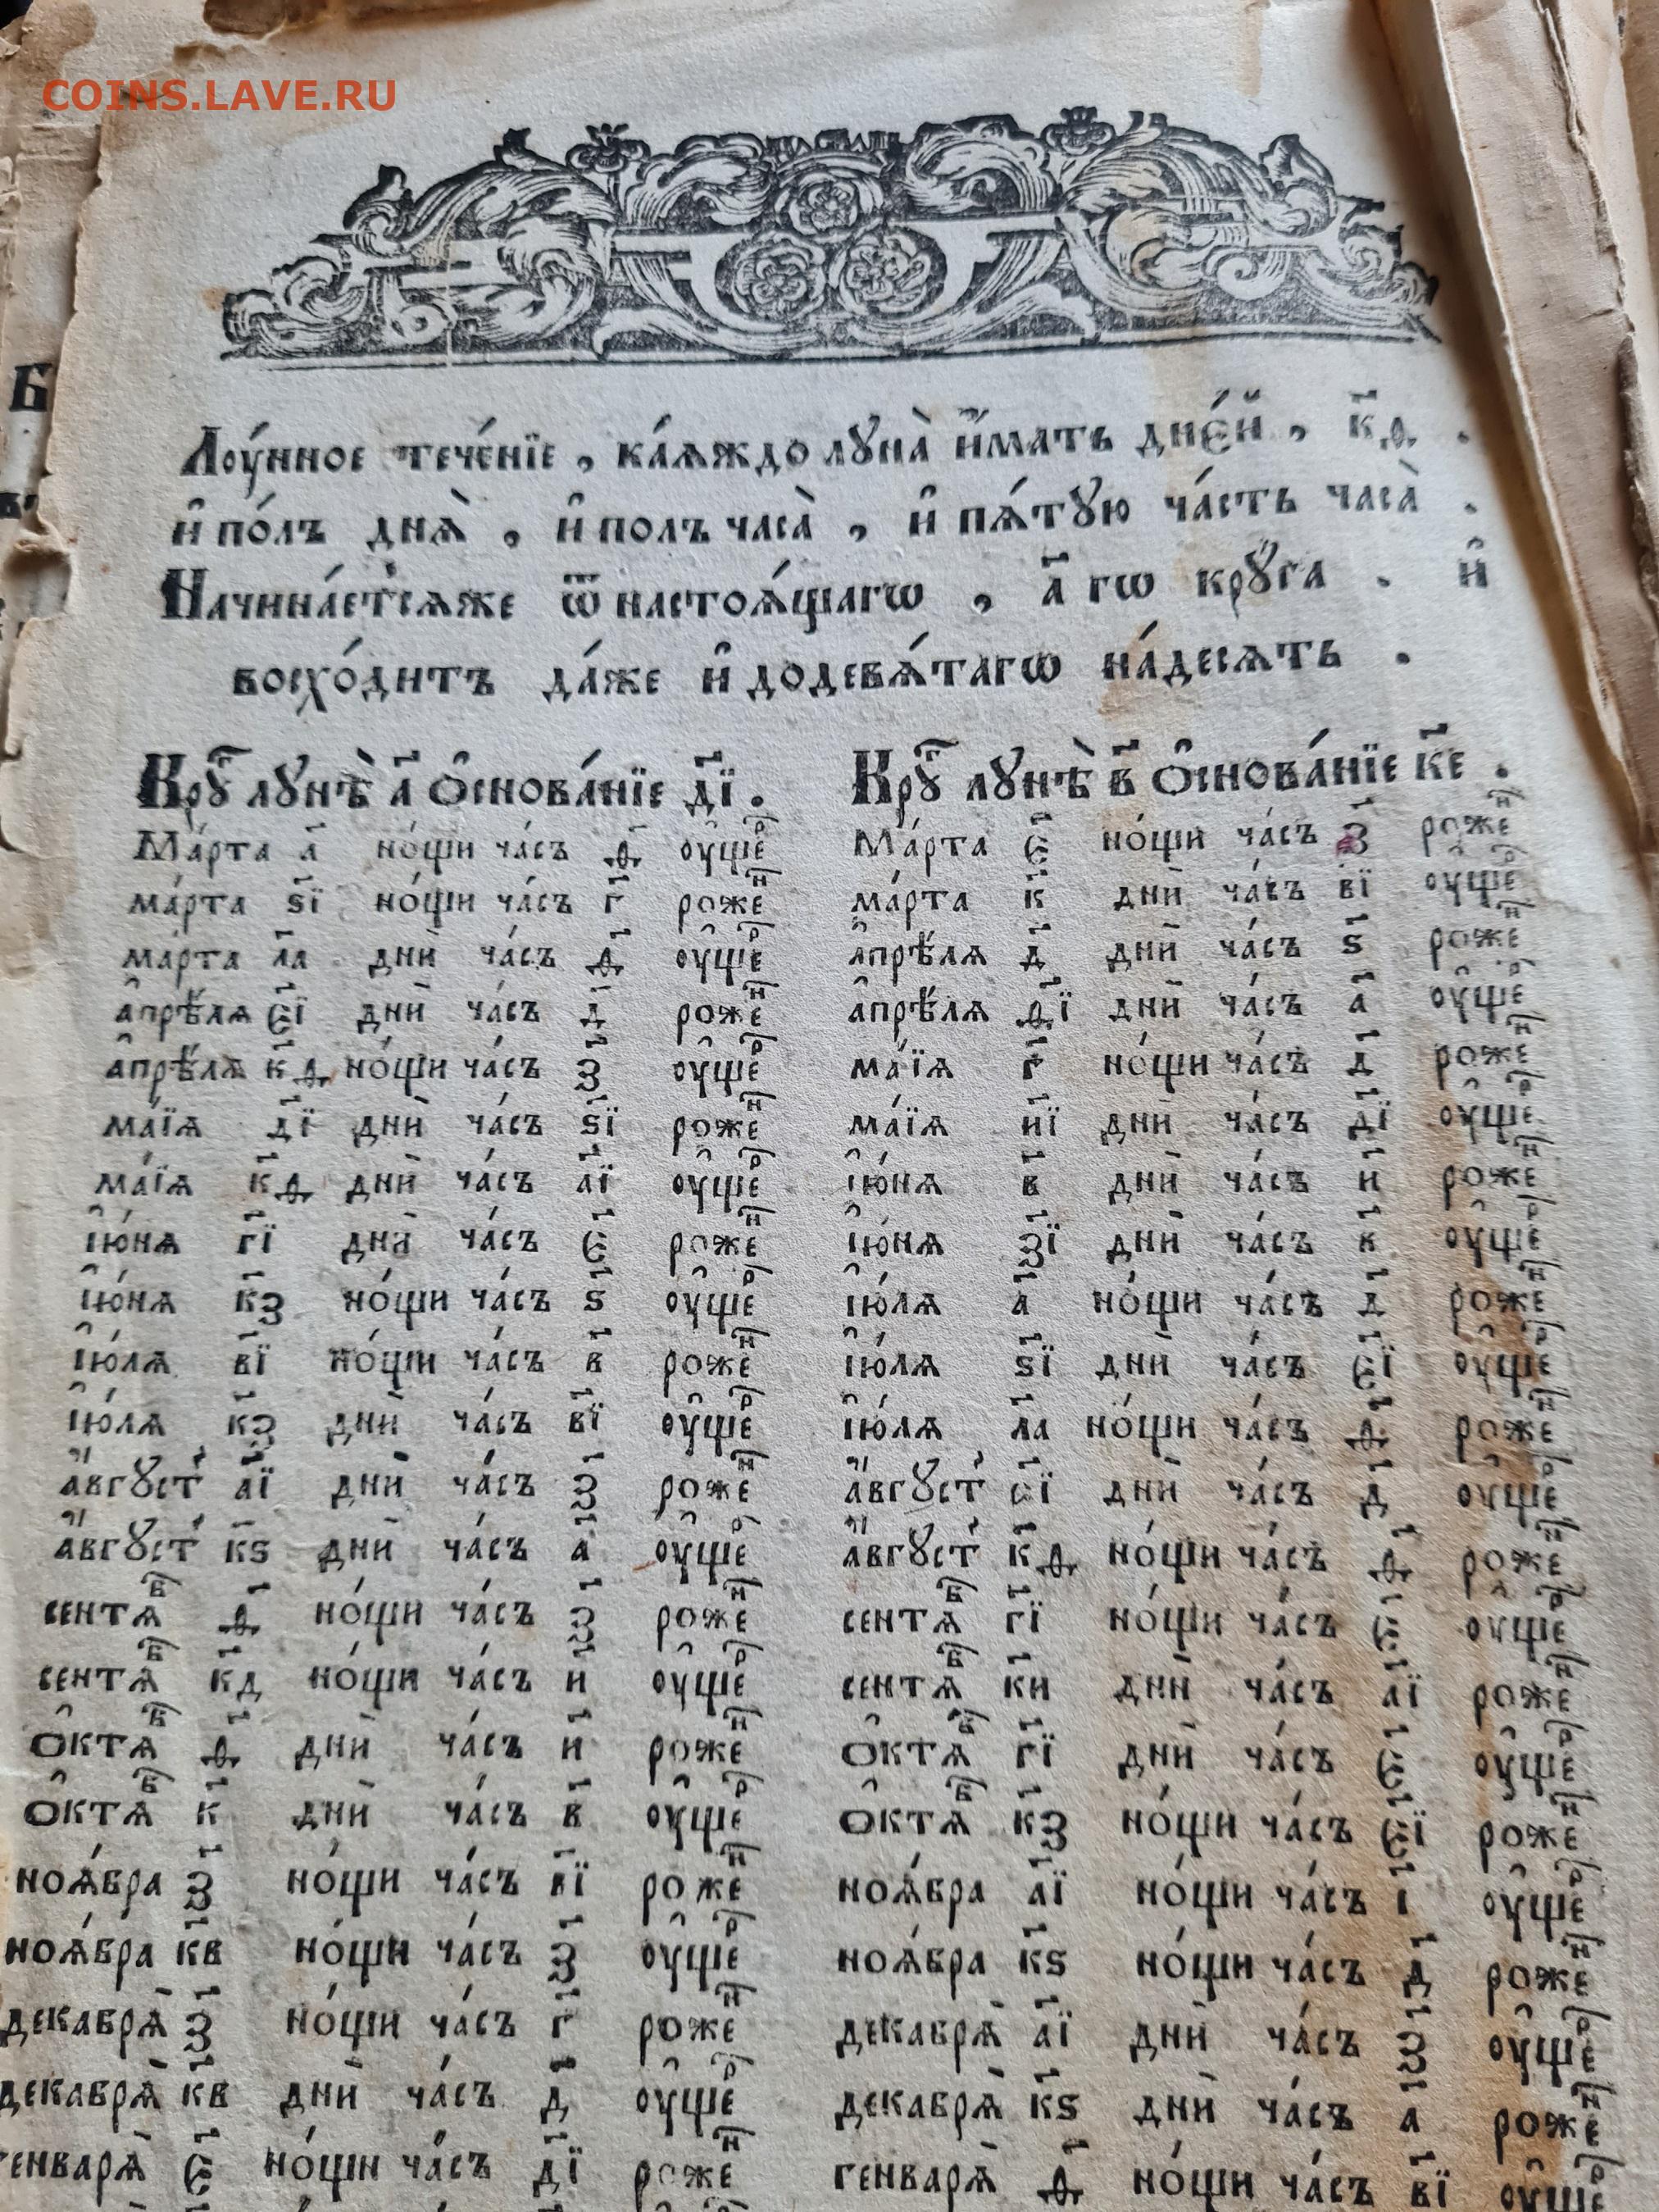 COINS.LAVE.RU
Лоу́нное тече́нїе , ка́ѧждо лꙋна̀ и҆́мать дне́й , к҃ѳ .
и҆ по́лъ днѧ̀ , и҆ полъ часа̀ , и҆ пѧ́тꙋю ча́сть часа̀ .
Начина́етсѧже ѿ настоѧ́щагѡ , а҃ гѡ крꙋ́га . и҆
восхо́дитъ да́же и҆ додевѧ́тагѡ на́десѧть .
Крꙋⷢ҇ лꙋнѣ̀ а҃ Ѻ҆снова́нїе д҃ї .
Ма́рта а҃ но́щи ча́съ ѳ҃ оу҆щеⷬ҇
ма́рта ѕ҃ї но́щи ча́съ г҃ рожеⷩ҇
ма́рта л҃а дни̇ ча́съ ѳ҃ оу҆щеⷬ҇
а҆прѣ́лѧ є҃ї дни̇ ча́съ д҃ рожеⷩ҇
а҆прѣ́лѧ к҃ѳ но́щи ча́съ з҃ оу҆щеⷬ҇
ма́їѧ д҃ї дни̇ ча́съ ѕ҃ї рожеⷩ҇
ма́їѧ к҃ѳ дни̇ ча́съ а҃ї оу҆щеⷬ҇
і҆ю́нѧ г҃ї дни̇ ча́съ є҃ рожеⷩ҇
і҆ю́нѧ к҃з но́щи ча́съ ѕ҃ оу҆щеⷬ҇
і҆ю́лѧ в҃ї но́щи ча́съ в҃ рожеⷩ҇
і҆ю́лѧ к҃з дни̇ ча́съ в҃ї оу҆щеⷬ҇
а҆́вгꙋст а҃ї дни̇ ча́съ з҃ рожеⷩ҇
а҆́вгꙋст к҃ѕ дни̇ ча́съ а҃ оу҆щеⷬ҇
сентѧⷠ҇ ѳ҃ но́щи ча́съ з҃ рожеⷩ҇
сентѧⷠ҇ к҃д но́щи ча́съ и҃ оу҆щеⷬ҇
Ѻ҆ктѧⷠ҇ ѳ҃ дни̇ ча́съ и҃ рожеⷩ҇
Ѻ҆ктѧⷠ҇ к҃ дни̇ ча́съ в҃ оу҆щеⷬ҇
ноѧ́брѧ з҃ но́щи ча́съ в҃ї рожеⷩ҇
ноѧ́брѧ к҃в но́щи ча́съ з҃ оу҆щеⷬ҇
декабрѧ̀ з҃ но́щи ча́съ г҃ рожеⷩ҇
декабрѧ̀ к҃в дни̇ ча́съ д҃ оу҆щеⷬ҇
генварѧ̀ є҃ но́щи ча́съ д҃ї рожеⷩ҇
Крꙋⷢ҇ лꙋнѣ̀ в҃ Ѻ҆снова́нїе к҃е .
Ма́рта є҃ но́щи ча́съ з҃ рожеⷩ҇
ма́рта к҃ дни̇ ча́съ в҃ї оу҆щеⷬ҇
а҆прѣ́лѧ д҃ дни̇ ча́съ ѕ҃ рожеⷩ҇
а҆прѣ́лѧ ѳ҃ї дни̇ ча́съ а҃ оу҆щеⷬ҇
ма́їѧ г҃ но́щи ча́съ д҃ рожеⷩ҇
ма́їѧ и҃ї дни̇ ча́съ д҃ї оу҆щеⷬ҇
і҆ю́нѧ в҃ дни̇ ча́съ и҃ рожеⷩ҇
і҆ю́нѧ з҃ї дни̇ ча́съ в҃ оу҆щеⷬ҇
і҆ю́лѧ а҃ но́щи ча́съ д҃ рожеⷩ҇
і҆ю́лѧ ѕ҃ї дни̇ ча́съ є҃ї оу҆щеⷬ҇
і҆ю́лѧ л҃а но́щи ча́съ ѳ҃ рожеⷩ҇
а҆́вгꙋст є҃ї дни̇ ча́съ д҃ оу҆щеⷬ҇
а҆́вгꙋст к҃ѳ но́щи ча́съ ѳ҃ рожеⷩ҇
сентѧⷠ҇ г҃ї но́щи ча́съ є҃ оу҆щеⷬ҇
сентѧⷠ҇ к҃и дни̇ ча́съ а҃ї рожеⷩ҇
Ѻ҆ктѧⷠ҇ г҃ї дни̇ ча́съ є҃ оу҆щеⷬ҇
Ѻ҆ктѧⷠ҇ к҃з но́щи ча́съ є҃ї рожеⷩ҇
ноѧ́брѧ а҃ї но́щи ча́съ і҃ оу҆щеⷬ҇
ноѧ́брѧ к҃ѕ но́щи ча́съ д҃ рожеⷩ҇
декабрѧ̀ а҃ї дни̇ ча́съ з҃ оу҆щеⷬ҇
декабрѧ̀ к҃ѕ дни̇ ча́съ а҃ рожеⷩ҇
генварѧ̀ ѳ҃ но́щи ча́съ в҃ї оу҆щеⷬ҇